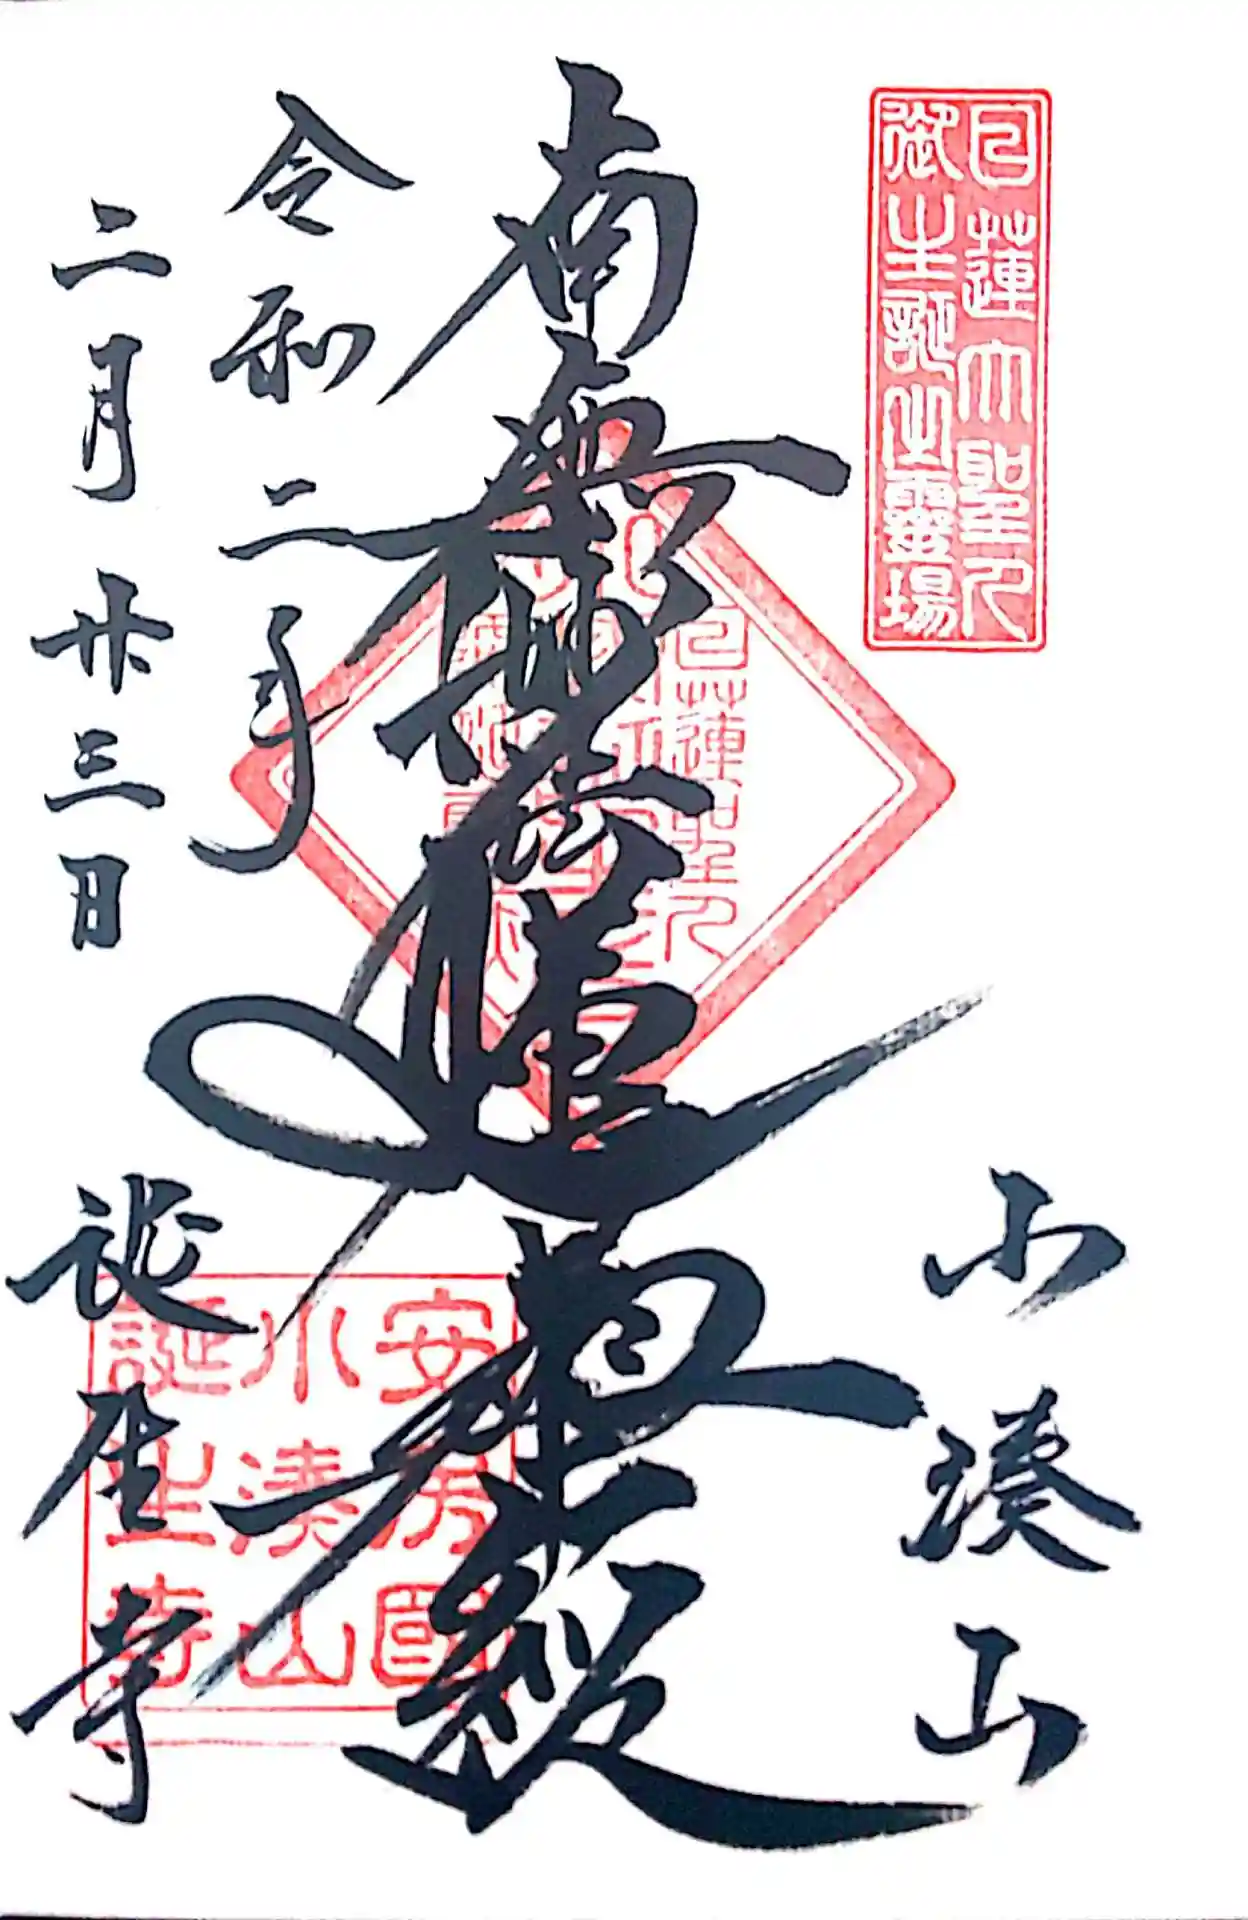 日蓮大聖人
御生誕之霊場
小湊山
南無妙法蓮華経
令和二年
二月廿三日
誕生寺
日蓮聖人
安房国
小湊山
誕生寺